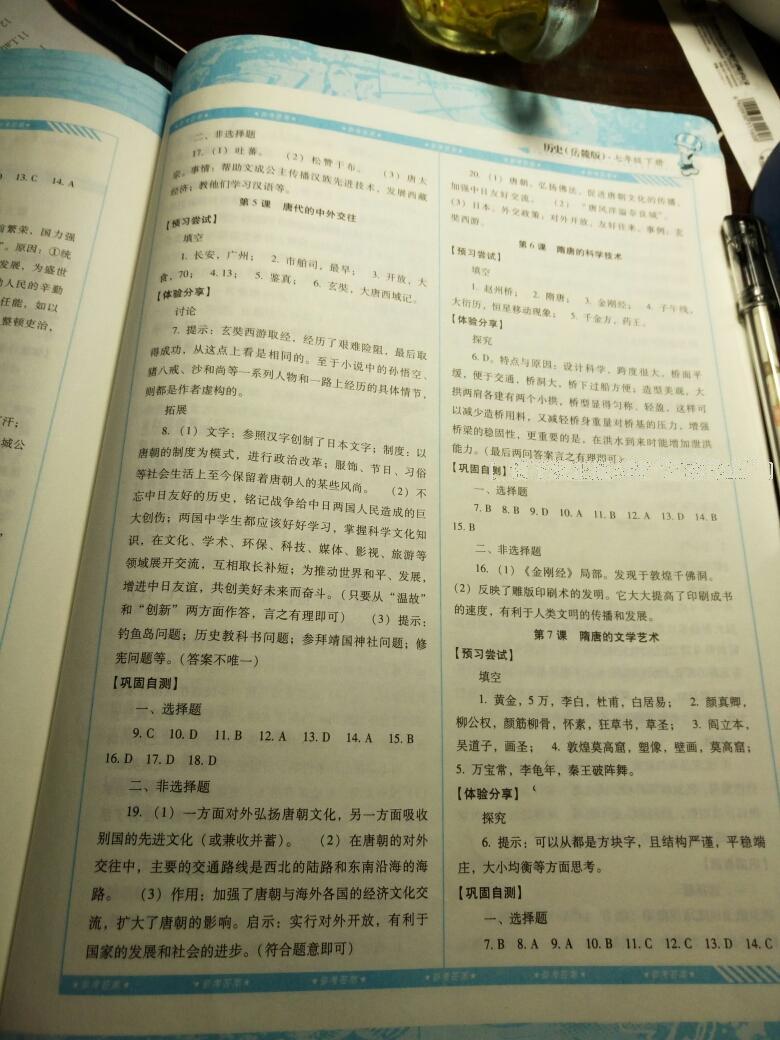 13. C 14. A
前繁荣，国力强
”。原因：①统
发展，为盛世
动人民的辛勤
任能，如以
整顿吏治，
城公
历史（岳麓版）·七年级下册
二、非选择题
17.（1）吐蕃。 （2）松赞干布。 （3）唐太
宗。事情：帮助文成公主传播汉族先进技术，发展西藏
经济；教他们学习汉语等。
第 5 课 唐代的中外交往
【预习尝试】
填空
1. 长安，广州； 2. 市舶司，最早； 3. 开放，大
食，70； 4.13； 5. 鉴真； 6. 玄奘，大唐西域记。
【体验分享】
讨论
7. 提示：玄奘西游取经，经历了艰难险阻，最后取
得成功，从这点上看是相同的。至于小说中的孙悟空、
猪八戒、沙和尚等一系列人物和一路上经历的具体情节，
则都是作者虚构的。
拓展
8.（1）文字：参照汉字创制了日本文字；制度：以
唐朝的制度为模式，进行政治改革；服饰、节日、习俗
等社会生活上至今保留着唐朝人的某些风尚。 （2）不
忘中日友好的历史，铭记战争给中日两国人民造成的巨
大创伤；两国中学生都应该好好学习，掌握科学文化知
识，在文化、学术、环保、科技、媒体、影视、旅游等
领域展开交流，互相取长补短；为推动世界和平、发展，
增进中日友谊，共创美好未来而奋斗。（只要从“温故”
和“创新”两方面作答，言之有理即可） （3）提示：
钓鱼岛问题；历史教科书问题；参拜靖国神社问题；修
宪问题等。（答案不唯一）
【巩固自测】
一、选择题
9. C 10. D 11. B 12. A 13. D 14. A 15. B
16. D 17. D 18. D
二、非选择题
19.（1）一方面对外弘扬唐朝文化，另一方面吸收
别国的先进文化（或兼收并蓄）。 （2）在唐朝的对外
交往中，主要的交通路线是西北的陆路和东南沿海的海
路。 （3）作用：加强了唐朝与海外各国的经济文化交
流，扩大了唐朝的影响。启示：实行对外开放，有利于
国家的发展和社会的进步。（符合题意即可）
20.（1）唐朝。弘扬佛法，促进唐朝文化的传播，
加强中日友好交流。 （2）“唐风洋溢奈良城”。
（3）日本。外交政策：对外开放，友好往来。事例：玄
奘西游。
第 6 课 隋唐的科学技术
【预习尝试】
填空
1. 赵州桥； 2. 隋唐； 3. 金刚经； 4. 子午线，
大衍历，恒星移动现象； 5. 千金方，药王。
【体验分享】
探究
6. D。特点与原因：设计科学，跨度很大，桥面平
缓，便于交通，桥洞大，桥下过船方便；造型美观，大
拱两肩各建有两个小拱，桥型显得匀称、轻盈，这样可
以减少造桥用料，又减轻桥身重量对桥基的压力，增强
桥梁的稳固性，更重要的是，在洪水到来时能增加泄洪
能力。（最后两问答案言之有理即可）
【巩固自测】
一、选择题
7. B 8. B 9. D 10. A 11. B 12. A 13. D 14. B
15. B
二、非选择题
16.（1）《金刚经》局部。发现于敦煌千佛洞。
（2）反映了雕版印刷术的发明。它大大提高了印刷成书
的速度，有利于人类文明的传播和发展。
第 7 课 隋唐的文学艺术
【预习尝试】
填空
1. 黄金，5 万，李白，杜甫，白居易； 2. 颜真卿，
柳公权，颜筋柳骨，怀素，狂草书，草圣； 3. 阎立本，
吴道子，画圣； 4. 敦煌莫高窟，塑像，壁画，莫高窟；
5. 万宝常，李龟年，秦王破阵舞。
【体验分享】
探究
6. 提示：可以从都是方块字，且结构严谨，平稳端
庄，大小均衡等方面思考。
【巩固自测】
一、选择题
7. B 8. A 9. A 10. B 11. C 12. C 13. D 14. C